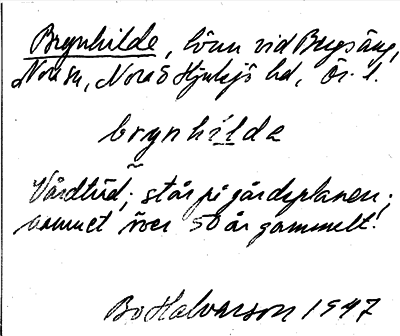 Brynhilde, lönn vid Bergsäng,
Norsu, Nora o Hjulsjö hd, Ör. l.
brynhilde
Vårdträd; står på gårdsplanen;
namnet över 50 år gammalt!
Bo Halvarson 1947